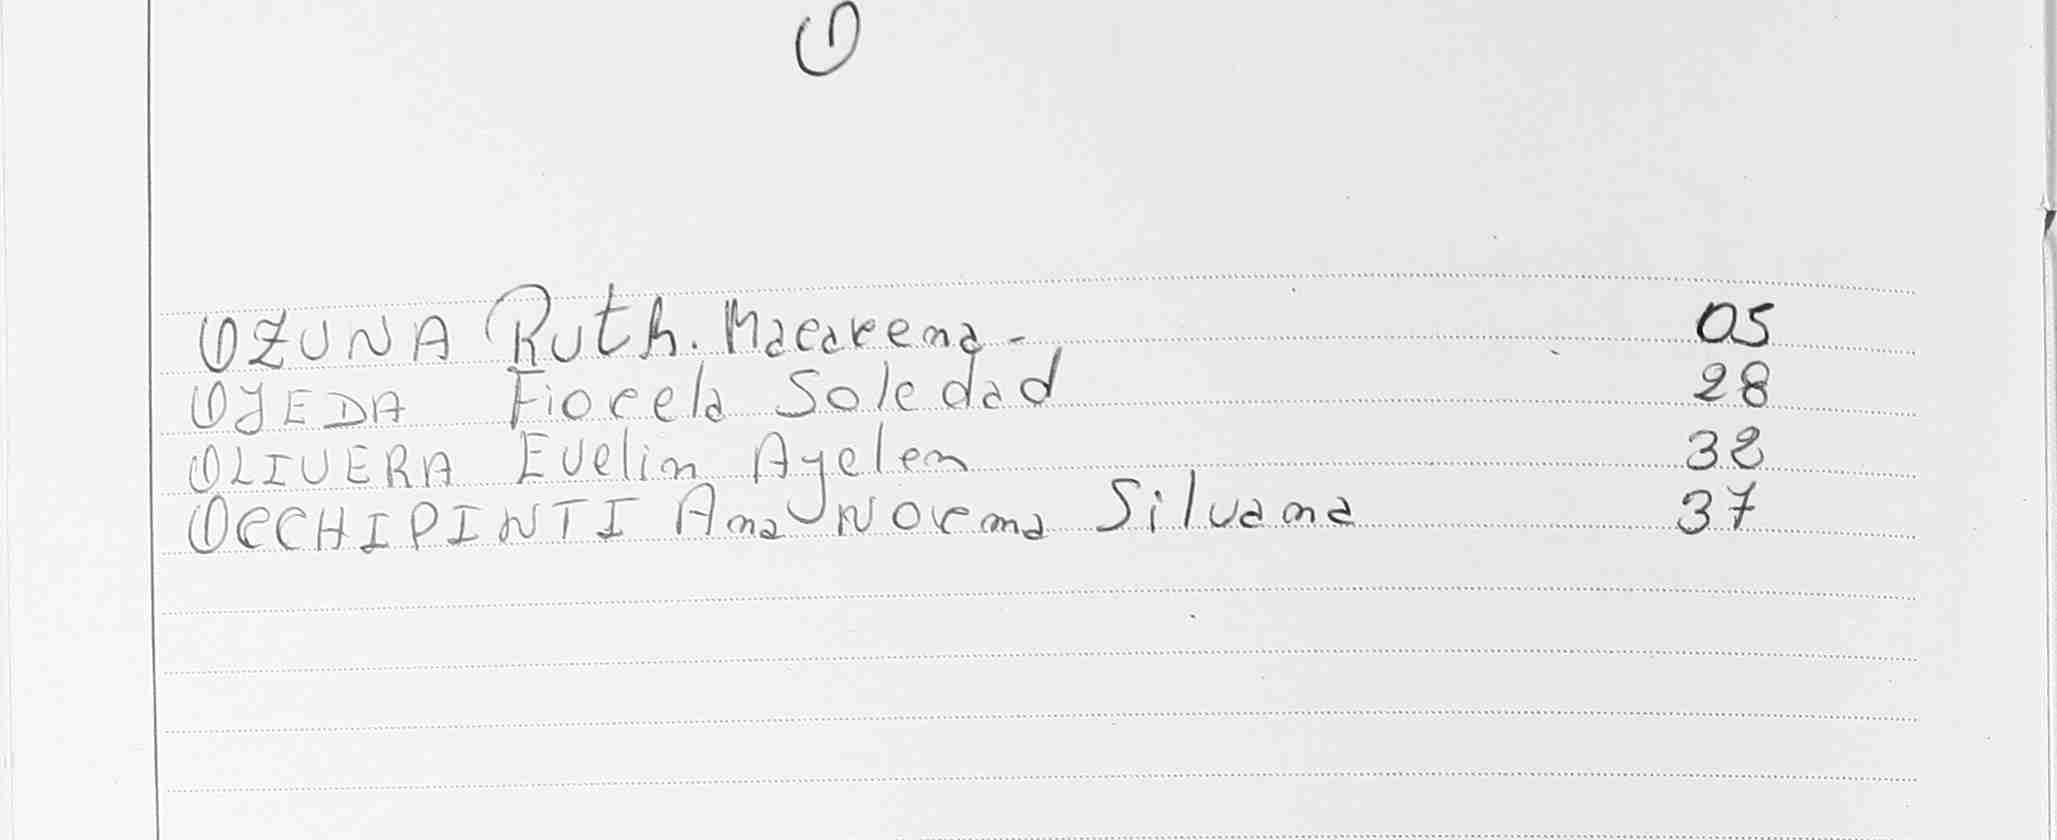 O
OZUNA Ruth. Macarena -
OJEDA Fiorela Soledad
OLIVERA Evelin Ayelen
OCCHIPINTI Ana Norma Silvana
05
28
38
37